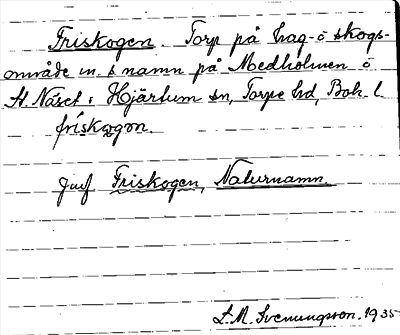 Friskogen. Torp på hag- o skogs-
område m. s namn på Medholmen o
St. Näset i Hjärtum sn, Torpe hd, Boh. l
friskogon.
Jmf Friskogen, Naturnamn.
S.M. Svenungsson. 1935